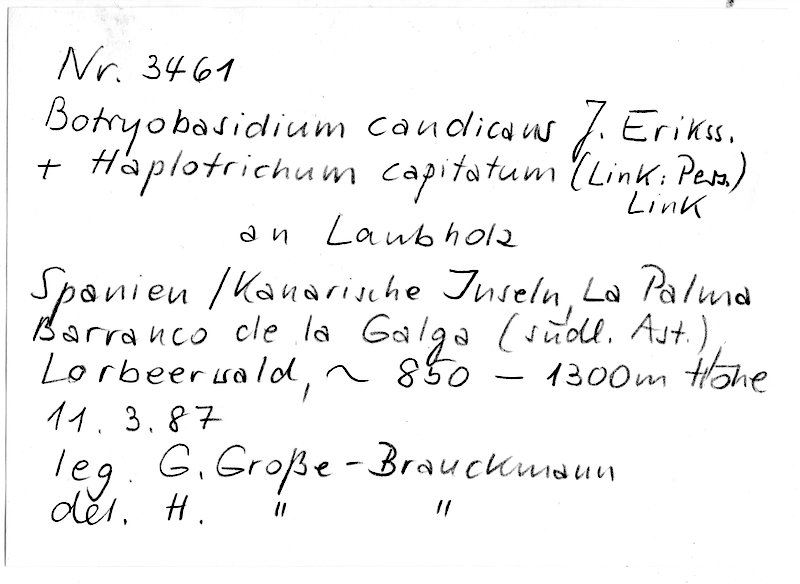 Nr. 3461
Botryobasidium candicans J. Erikss.
+ Haplotrichum capitatum (Link: Pers.)
Link
an Laubholz
Spanien / Kanarische Inseln, La Palma
Barranco de la Galga (südl. Ast.),
Lorbeerwald, ~ 850 – 1300m Höhe
11. 3. 87
leg. G. Große-Brauckmann
det. H. " "